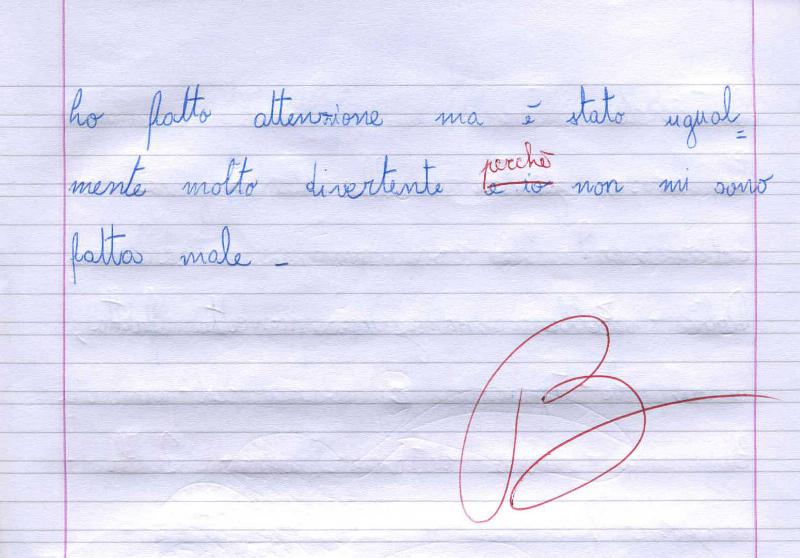 ho fatto attenzione ma è stato ugual=
perchè
mente molto divertente e io non mi sono
fatta male -
B